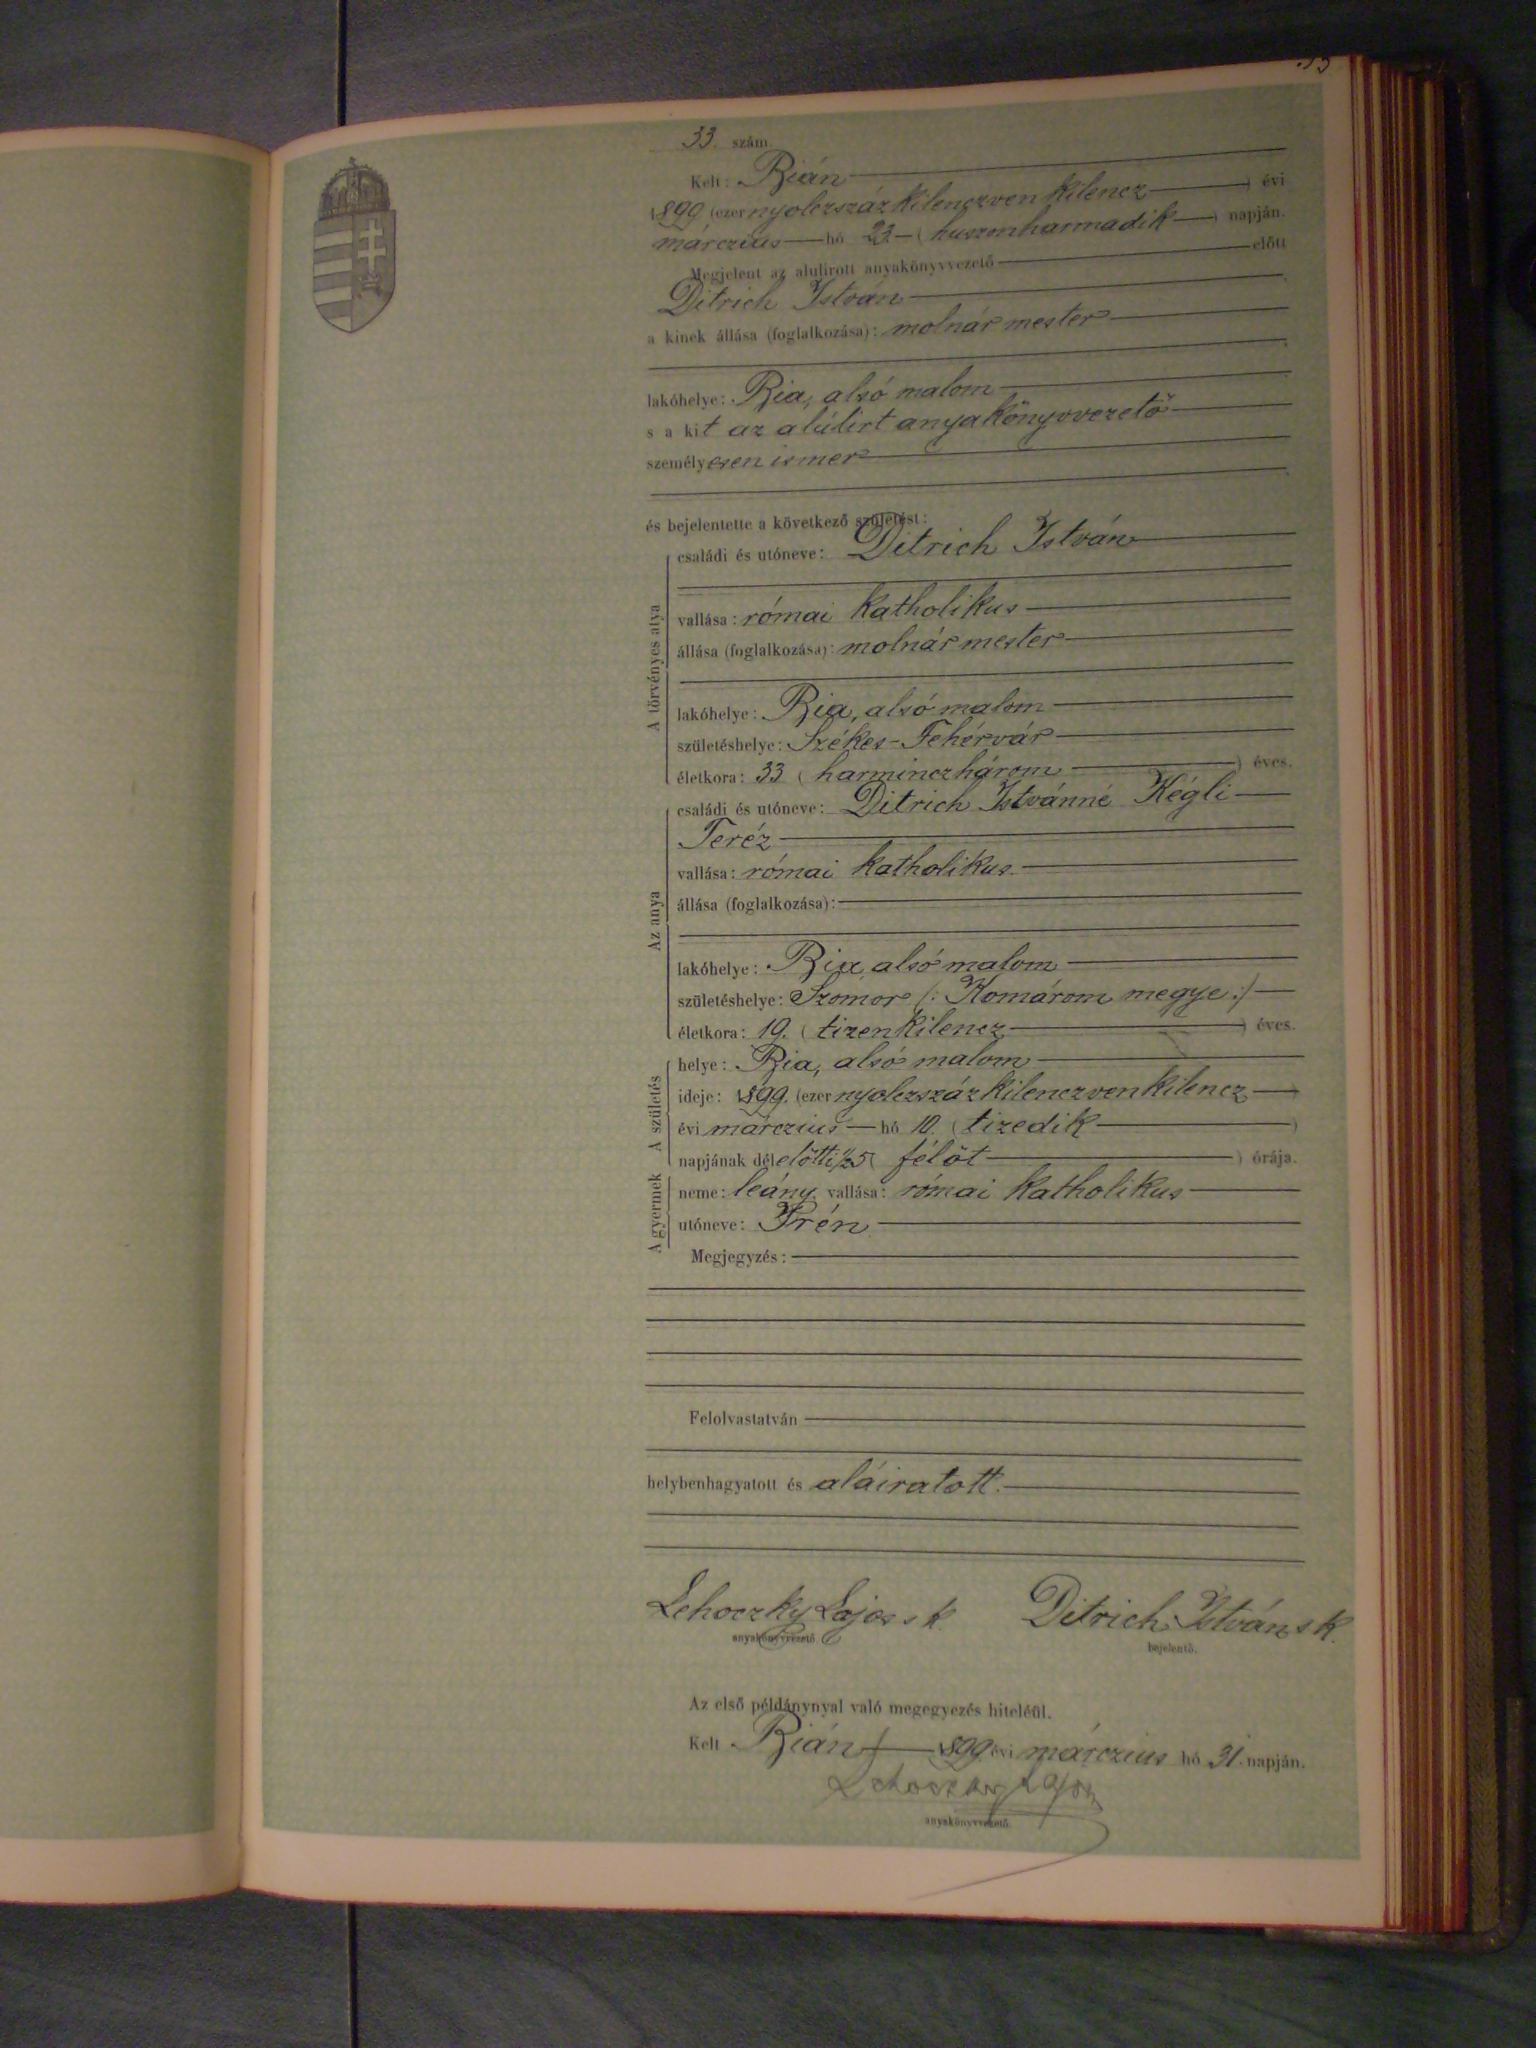 33. szám
Kelt: Bián
1899 (ezer nyolczszáz kilenczven kilencz ) évi
márczius hó 23 ( huszonharmadik ) napján.
Megjelent az alulirott anyakönyvvezető előtt
Ditrich István
a kinek állása (foglalkozása): molnár mester
lakóhelye: Bia, alsó malom
s a kit az alúlirt anyakönyvvezető
személyesen ismer
és bejelentette a következő születést:
A törvényes atya
családi és utóneve: Ditrich István
vallása: római katholikus
állása (foglalkozása): molnár mester
lakóhelye: Bia, alsó malom
születéshelye: Székes-Fehérvár
életkora: 33 ( harminczhárom ) éves.
Az anya
családi és utóneve: Ditrich Istvánné Kégli
Teréz
vallása: római katholikus.
állása (foglalkozása):
lakóhelye: Bia, alsó malom
születéshelye: Szomor (: Komárom megye :)
életkora: 19. ( tizenkilencz ) éves.
A születés
helye: Bia, alsó malom
ideje: 1899. (ezer nyolczszáz kilenczven kilencz )
évi márczius hó 10. ( tizedik )
napjának délelőtti ½5 ( félöt ) órája.
A gyermek
neme: leány. vallása: római katholikus
utóneve: Irén
Megjegyzés:
Felolvastatván
helybenhagyatott és aláiratott.
Lehoczky Lajos s k. Ditrich István s k.
anyakönyvvezető bejelentő.
Az első példánynyal való megegyezés hiteléül.
Kelt Bián 1899 évi márczius hó 31. napján.
Lehoczky Lajos
anyakönyvvezető.